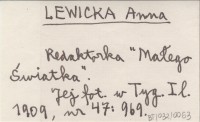 LEWICKA Anna
Redaktorka "Małego
Światka".
Jej fot. w Tyg. Il.
1909, nr 47: 969